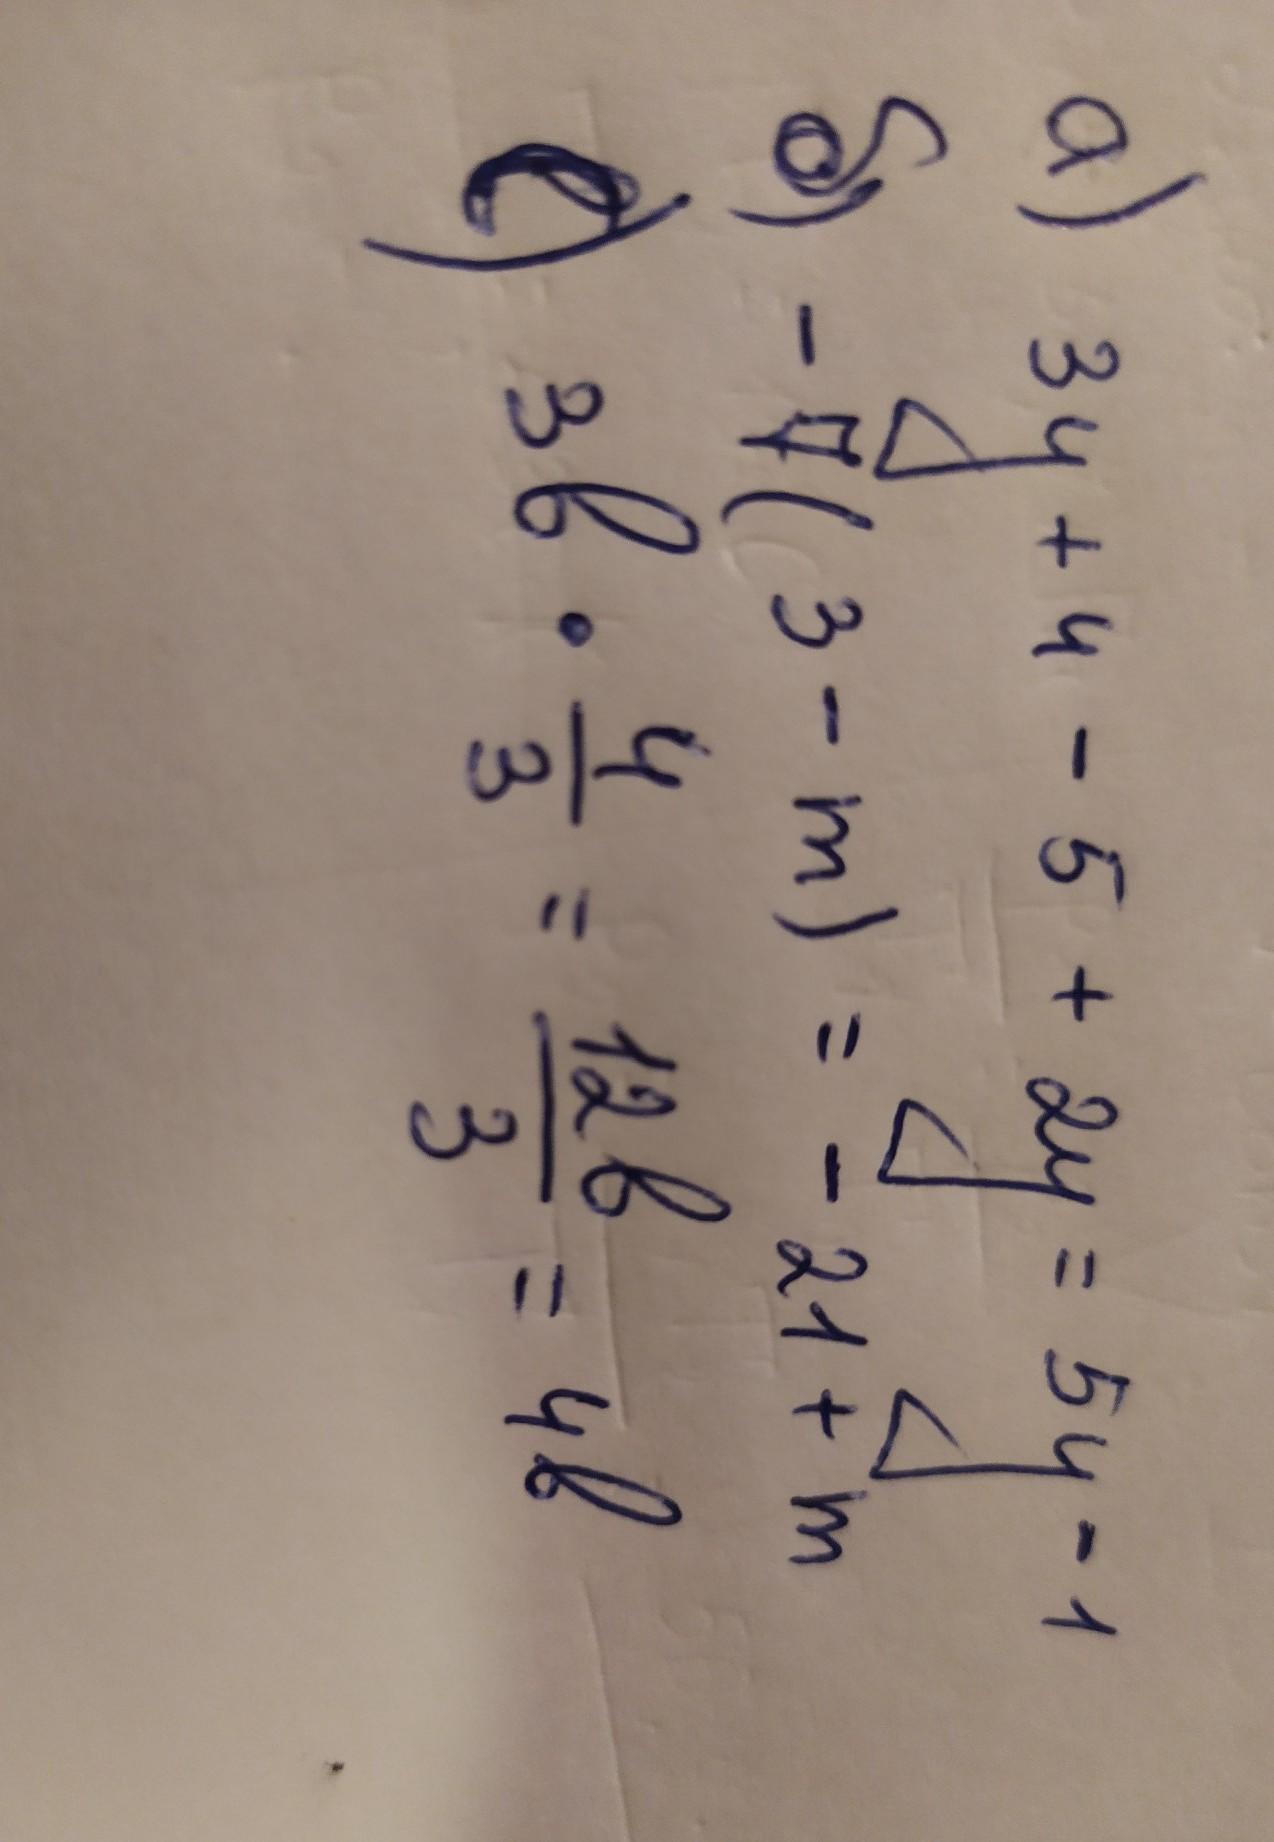 а) 3y + 4 - 5 + 2y = 5y - 1
б) - 7(3 - m) = - 21 + m
с) 3в · 4/3 = 12в/3 = 4в